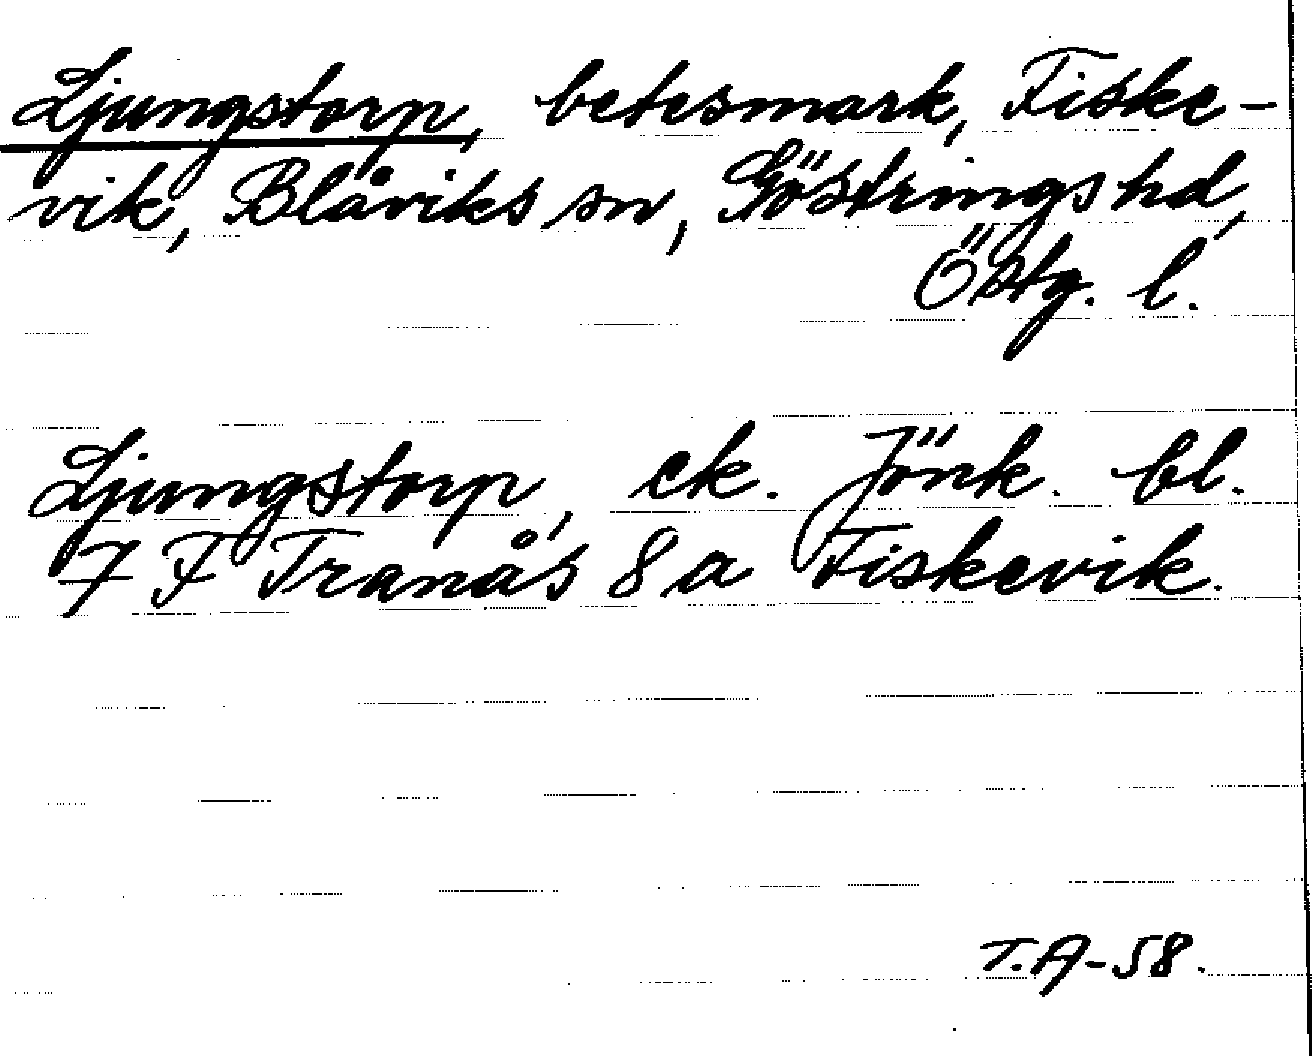 Ljungstorp, betesmark, Fiske-
vik, Blåviks sn, Göstrings hd,
Östg. l.
Ljungstorp, ek. Jönk. bl.
7 F Tranås 8 a Fiskevik.
T.A-58.